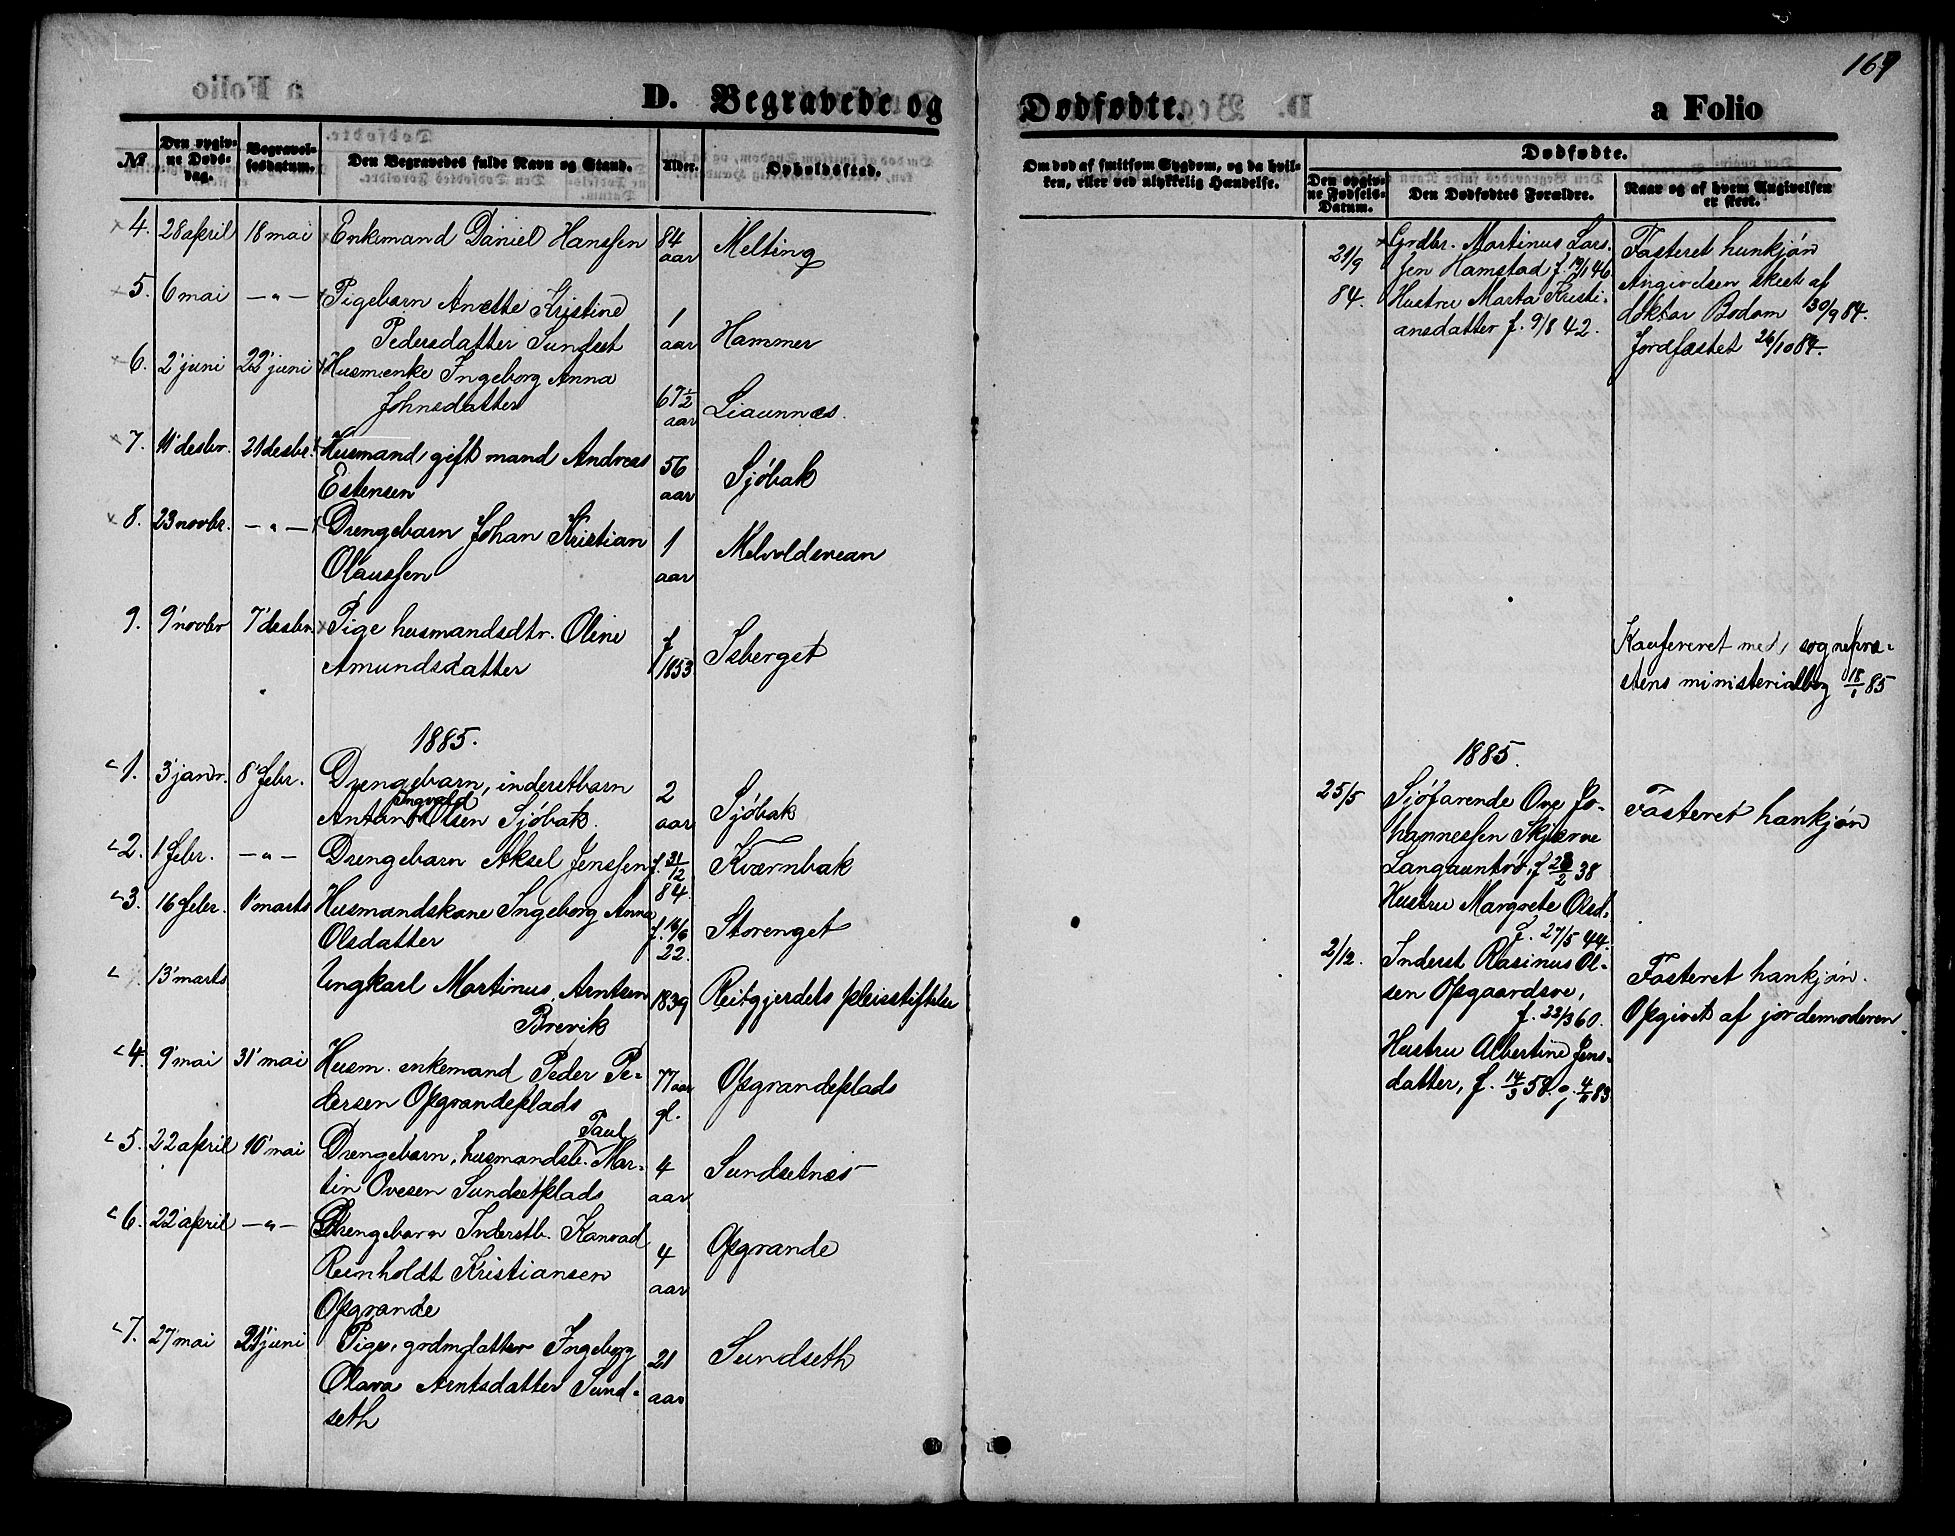 169
D. Begravede og Dødfødte. a Folio
No. Den opgivne Dødsdag. Begravelsesdatum. Den Begravedes fulde Navn og Stand. Alder. Opholdssted.
4. 28 april 18 mai Enkemand Daniel Hanssen 84 aar Melting
5. 6 mai — " — Pigebarn Anette Kristine
Pedersdatter Sundset 1 aar Hammer
6. 2' juni 22' juni Husmenke Ingeborg Anna
Johnsdatter 67½ aar Liaunnæs.
7. 11' desbr. 21 desbr. Husmand, gift mand, Andreas
Estensen 56 aar Sjøbak
8. 23 novbr. — " — Drengebarn Johan Kristian
Olaussen 1 aar Melvoldsvean
9. 9' novbr 7' desbr. Pige husmandsdtr. Oline
Amundsdatter f 1853 Isberget
1885.
1. 3' janr. 8' febr. Drengebarn, inderstbarn
Ingvald
Anton Olsen Sjøbak. 2 aar Sjøbak
2. 1 febr. — " — Drengebarn Aksel Jenssen f. 31/12 84. Kvernbak
3. 16 febr. 1' marts Husmandskone Ingeborg Anna
Olsdatter f. 14/6 22. Storenget
13' marts Ungkarl Martinus Arntsen
Brevik 1839 Reitgjerdets pleiestiftelse
4. 9' mai 31' mai Husm. enkemand Peder Pe-
dersen Opgrandeplads 77 aar gl. Opgrandeplads
Paul
5. 22 april 10' mai Drengebarn, husmandsb. Mar-
tin Ovesen Sundsetplads 4 aar Sundsetnæs
6. 22' april — " — Drengebarn Inderstb. Konrad
Reinholdt Kristiansen
Opgrande 4 aar Opgrande
7. 27' mai 21' juni Pige, grdmdatter Ingeborg
Olava Arntsdatter Sund-
seth 21 aar Sundseth
Om død af smitsom Sygdom, og da hvil-
ken, eller ved ulykkelig Hændelse.
Dødfødte.
Den opgiv-
ne Fødsels-
Datum. Den Dødfødtes Forældre. Naar og af hvem Angivelsen
er skeet.
21/9 84. Grdbr. Martinus Lars-
sen Hamstad f. 19/1 46.
Hustru Marta Kristi-
ansdatter f. 9/8 42.
Fosteret hunkjøn
Angivelsen skeet af
doktor Bodom 30/9 84.
Jordfæstet 26/10 84.
Konfereret med sognepræ-
stens ministerialbog 18/1 85
1885.
25/5 Sjøfarende Ove Jo-
hannessen Skjærve
Langauntrø, f 28/2 38
Hustru Margrete Olsd.
f. 27/5 44.
Fosteret hankjøn
2/12. Inderst Rasinus Ol-
sen Opgaardsve,
f. 22/3 60.
Hustru Albertine Jens-
datter, f. 14/3 58. g. 4/11 83
Fosteret hankjøn.
Opgivet af jordemoderen